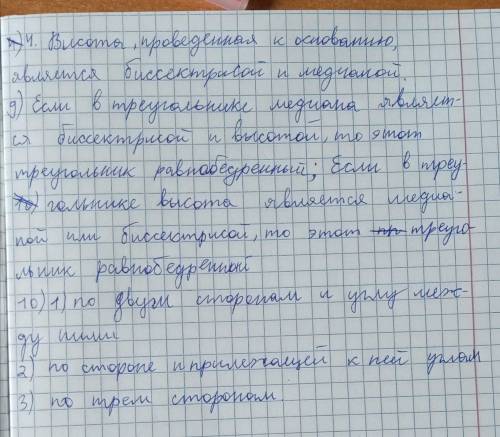 4. Висота, проведенная к основанию,
является биссектрисой и медианой.
9) Если в треугольнике медиана являет-
ся биссектрисой и высотой, то этот
треугольник равнобедренный; Если в треу-
гольнике высота является медиа-
ной или биссектрисой, то этот треуго-
льник равнобедренный
10) 1) по двум сторонам и углу меж-
ду ними
2) по стороне и прилежащей к ней углам
3) по трем сторонам.